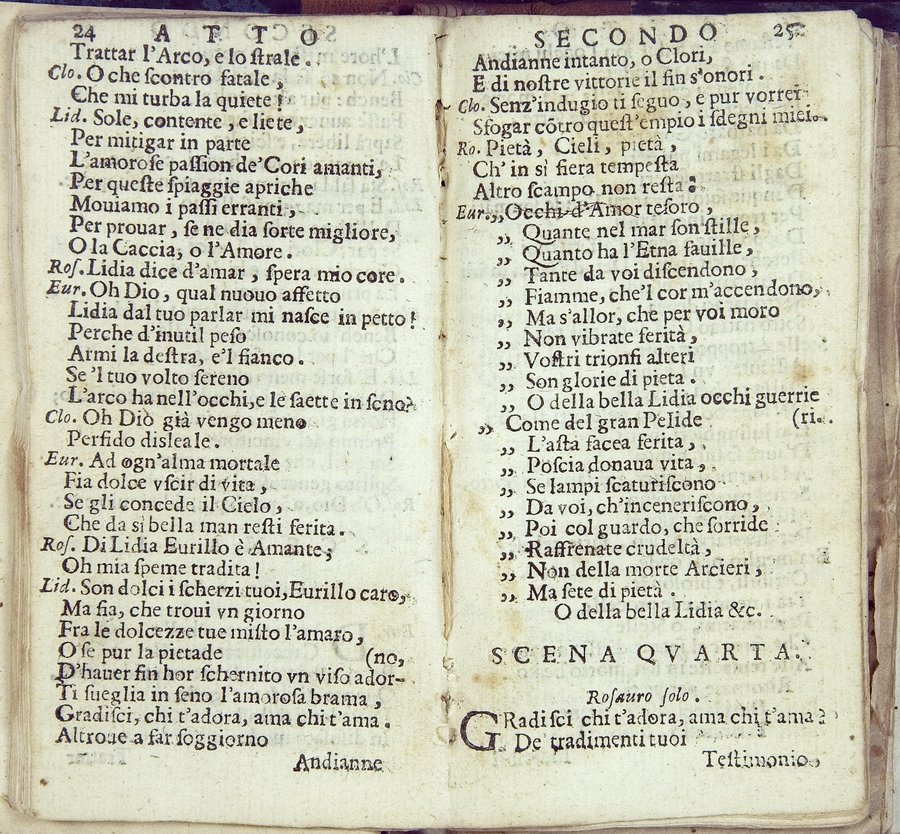 24 ATTO
Trattar l'Arco, e lo ſtrale.
Clo. O che ſcontro fatale,
Che mi turba la quiete!
Lid. Sole, contente, e liete,
Per mitigar in parte
L'amoroſe paſſion de'Cori amanti,
Per queſte ſpiaggie apriche
Mouiamo i paſſi erranti,
Per prouar, ſe ne dia ſorte migliore,
O la Caccia, o l'Amore.
Roſ. Lidia dice d'amar, ſpera mio core.
Eur. Oh Dio, qual nuouo affetto
Lidia dal tuo parlar mi naſce in petto!
Perche d'inutil peſo
Armi la deſtra, e'l fianco.
Se 'l tuo volto ſereno
L'arco ha nell'occhi, e le ſaette in ſeno?
Clo. Oh Diò già vengo meno
Perfido disleale.
Eur. Ad ogn'alma mortale
Fia dolce vſcir di vita,
Se gli concede il Cielo,
Che da sì bella man reſti ferita.
Roſ. Di Lidia Eurillo è Amante;
Oh mia ſpeme tradita!
Lid. Son dolci i ſcherzi tuoi, Eurillo caro,
Ma fia, che troui vn giorno
Fra le dolcezze tue miſto l'amaro,
O ſe pur la pietade (no,
D'hauer fin hor ſchernito vn viſo ador-
Ti ſueglia in ſeno l'amoroſa brama,
Gradiſci, chi t'adora, ama chi t'ama.
Altroue a far ſoggiorno
Andianne
SECONDO 25
Andianne intanto, o Clori,
E di noſtre vittorie il fin s'onori.
Clo. Senz'indugio ti ſeguo, e pur vorrei
Sfogar cõtro queſt'empio i ſdegni miei.
Ro. Pietà, Cieli, pietà,
Ch' in sì fiera tempeſta
Altro ſcampo non reſta:
Eur. „Occhi d'Amor teſoro,
„ Quante nel mar ſon ſtille,
„ Quanto ha l'Etna fauille,
„ Tante da voi diſcendono,
„ Fiamme, che'l cor m'accendono,
„ Ma s'allor, che per voi moro
„ Non vibrate ferità,
„ Voſtri trionfi alteri
„ Son glorie di pieta.
„ O della bella Lidia occhi guerrie
„ Come del gran Pelide (ri.
„ L'aſta facea ferita,
„ Poſcia donaua vita,
„ Se lampi ſcaturiſcono
„ Da voi, ch'inceneriſcono,
„ Poi col guardo, che ſorride
„ Raffrenate crudeltà,
„ Non della morte Arcieri,
„ Ma ſete di pietà.
O della bella Lidia &c.
SCENA QVARTA.
Roſauro ſolo.
GRadiſci chi t'adora, ama chi t'ama?
De' tradimenti tuoi
Teſtimonio,